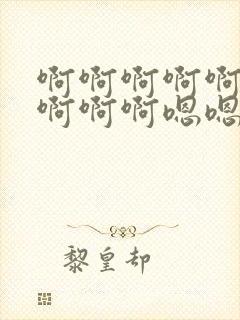 啊啊啊啊啊
啊啊啊嗯嗯
黎皇却